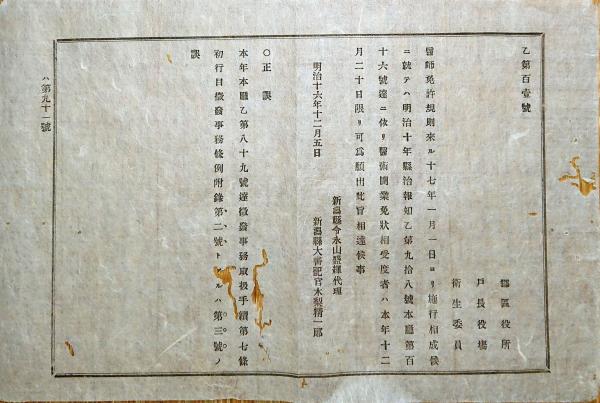 乙第百壹號
郡區役所
戸長役場
衛生委員
醫師免許規則來ル十七年一月一日ヨリ施行相成候
ニ就テハ明治十年縣治報知乙第九拾八號本廳第百
十六號達ニ依リ醫術開業免狀相受度者ハ本年十二
月二十日限リ可爲願出此旨相達候事
明治十六年十二月五日
新潟縣令永山盛輝代理
新潟縣大書記官木梨精一郎
○正誤
本年本廳乙第八十九號達徴發事務取扱手續第七條
初行目徴發事務條例附錄第二號トアルハ第三號ノ
誤
ハ第九十一號